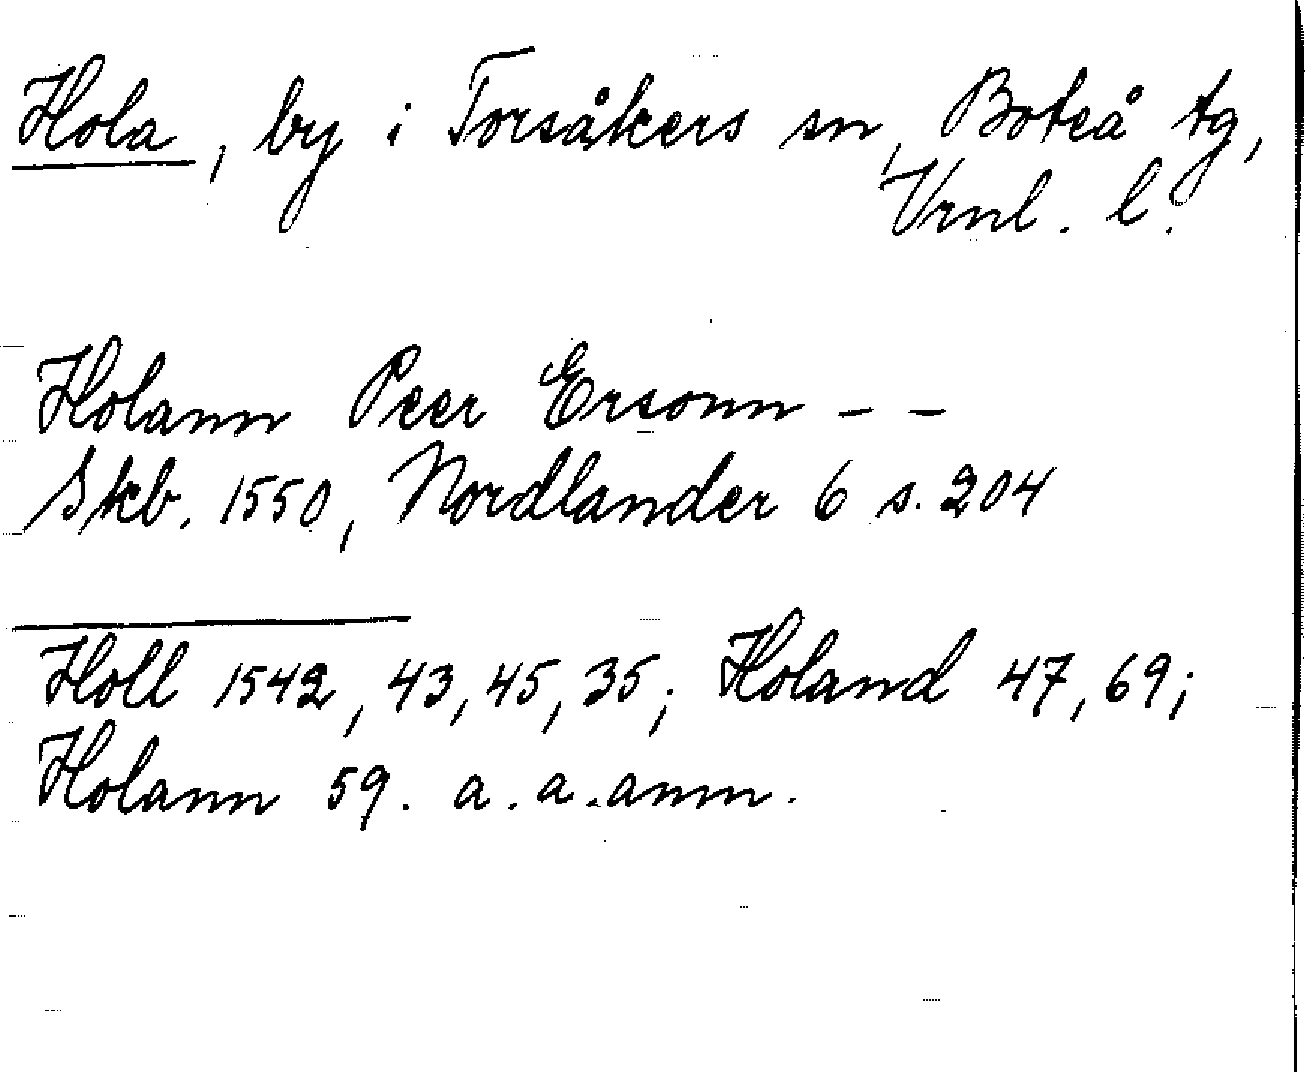 Hola, by i Torsåkers sn, Boteå tg,
Vrnl. l.
Holann Peer Ersonn – –
Skb. 1550, Nordlander 6 s. 204
Holl 1542, 43, 45, 35; Holand 47, 69;
Holann 59. a. a. anm.